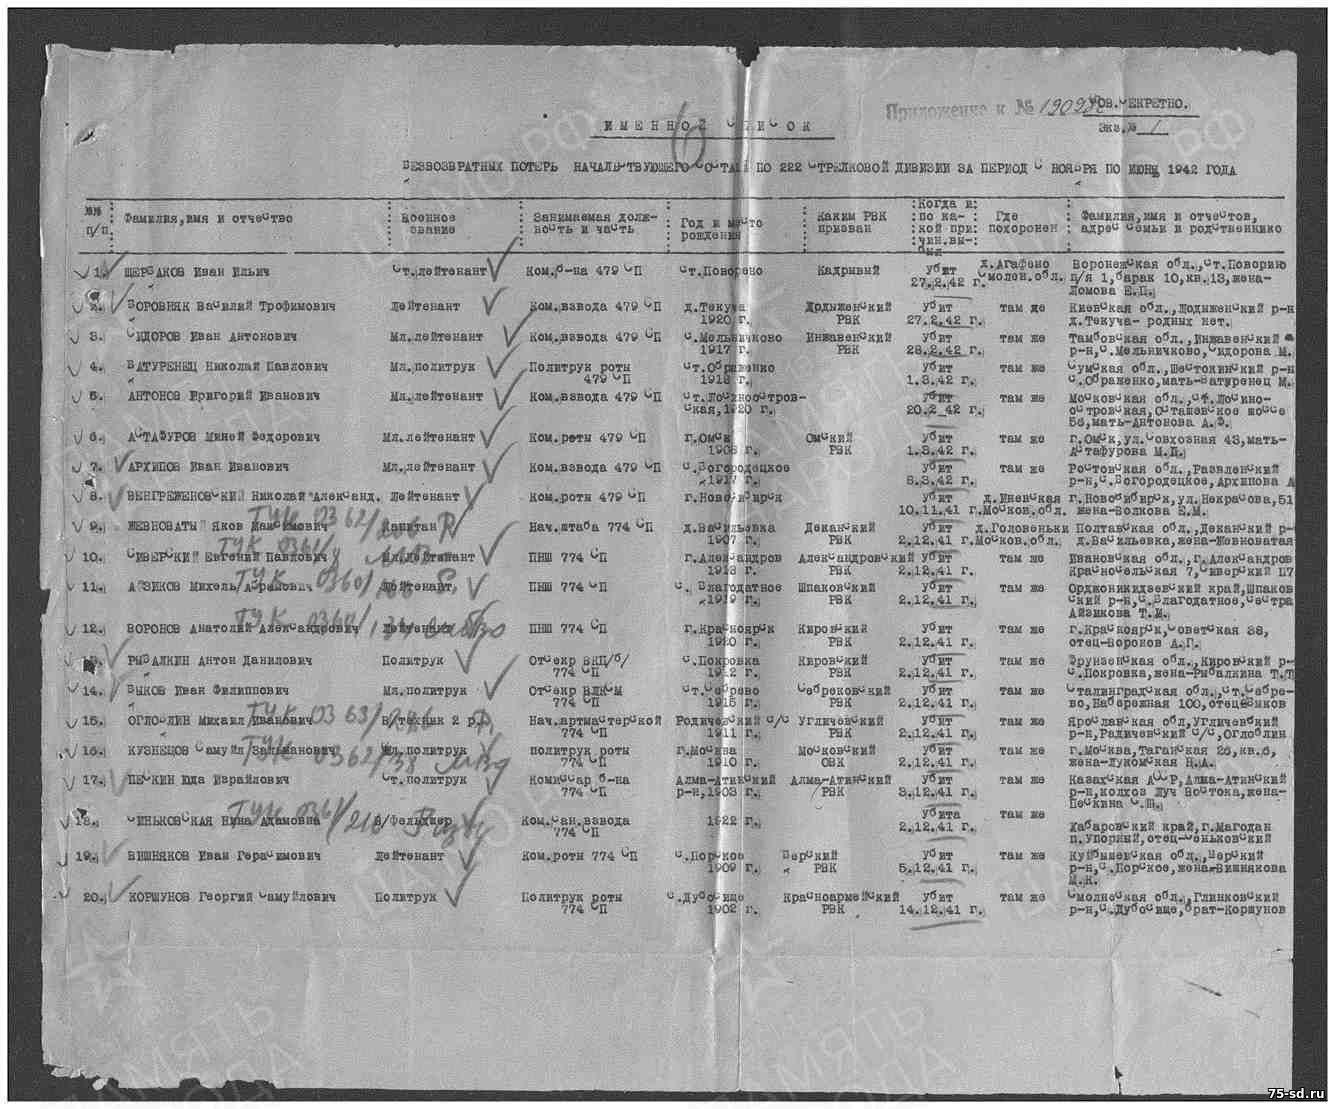 Приложение к № 19098с
Сов.Секретно.
Экз.№ 1
ИМЕННОЙ СПИСОК
БЕЗВОЗВРАТНЫХ ПОТЕРЬ НАЧАЛЬСТВУЮЩЕГО СОСТАВА ПО 222 СТРЕЛКОВОЙ ДИВИЗИИ ЗА ПЕРИОД С НОЯБРЯ ПО ИЮНЬ 1942 ГОДА
№№ п/п. Фамилия,имя и отчество Военное звание Занимаемая долж- ность и часть Год и место рождения Каким РВК призван Когда и по ка- кой при- чин.вы- был Где похоронен Фамилия,имя и отчестов, адрес семьи и родственнико
1. ЩЕРБАКОВ Иван Ильич Ст.лейтенант Ком.б-на 479 СП ст.Поворено Кадрывый Убит д.Агафено Воронежская обл.,ст.Поворино
27.2.42 г. Смолен.обл. п/я 1,барак 10,кв.13,жена-
Ломова Е.П.
2. БОРОВНЯК Василий Трофимович Лейтенант Ком.взвода 479 СП д.Текуча Лодыженский Убит там же Киевская обл.,Лодыженский р-н
1920 г. РВК 27.2.42 г. д.Текуча- родных нет.
3. СИДОРОВ Иван Антонович Мл.лейтенант Ком.взвода 479 СП с.Мельничково Инжавенский Убит там же Тамбовская обл.,Инжавенский
1917 г. РВК 28.2.42 г. р-н,с.Мельничково,Сидорова М.
4. БАТУРЕНЕЦ Николай Павлович Мл.политрук Политрук роты ст.Ображенко Убит там же Сумская обл.,Шестокинский р-н
479 СП 1918 г. 1.3.42 г. с.Ображенко,мать-Батуренец М.
5. АНТОНОВ Григорий Иванович Мл.лейтенант Ком.взвода 479 СП ст.Лосиноостров- Убит там же Московская обл.,ст.Лосино-
ская,1920 г. 20.2.42 г. островская,Осташевское шоссе
58,мать-Антонова А.Ф.
6. АСТАФУРОВ Миней Федорович Мл.лейтенант Ком.роты 479 СП г.Омск Омский Убит там же г.Омск,ул.Совхозная 43,мать-
1908 г. РВК 1.3.42 г. Астафурова М.П.
7. АРХИПОВ Иван Иванович Мл.лейтенант Ком.взвода 479 СП с.Богородецкое Убит там же Ростовская обл.,Развленский
1917 г. 8.3.42 г. р-н,с.Богородецкое,Архипова А
8. ВЕНГРЕЖЕНОВСКИЙ Николай Александ. Лейтенант Ком.роты 479 СП г.Новосибирск Убит д.Иневская г.Новосибирск,ул.Некрасова,51
10.11.41 г. Москов.обл. жена-Волкова Е.М.
9. ЖЕВНОВАТЫЙ Яков Максимович Капитан Нач.штаба 774 СП д.Васильевка Деканский Убит д.Головеньки Полтавская обл.,Деканский р-н
1907 г. РВК 2.12.41 г. Москов.обл. д.Васильевка,жена-Жевноватая
10. СИВЕРСКИЙ Евгений Павлович Мл.лейтенант ПНШ 774 СП г.Александров Александровский Убит там же Ивановская обл.,г.Александров
1918 г. РВК 2.12.41 г. Красносельская 7,Сиверский П7
11. АЙЗИКОВ Михель Абрамович Лейтенант ПНШ 774 СП с. Благодатное Шпаковский Убит там же Орджоникидзевский край,Шпаков
1919 г. РВК 2.12.41 г. ский р-н,с.Благодатное,сестра
Айзикова Т.И.
12. ВОРОНОВ Анатолий Александрович Лейтенант ПНШ 774 СП г.Красноярск Кировский Убит там же г.Красноярск,Советская 38,
1920 г. РВК 2.12.41 г. отец-Воронов А.П.
13. РЫБАЛКИН Антон Данилович Политрук Отсекр ВКП/б/ с.Покровка Кировский Убит там же Фрунзенская обл.,Кировский р-
774 СП 1912 г. РВК 2.12.41 г. с.Покровка,жена-Рыбалкина Т.Т
14. БЫКОВ Иван Филиппович Мл.политрук Отсекр ВЛКСМ ст.Себрево Себрековский Убит там же Сталинградская обл.,ст.Себре-
774 СП 1915 г. РВК 2.12.41 г. во,Набережная 100,отец-Быков
15. ОГЛОБЛИН Михаил Иванович В/техник 2 р. Нач.артмастерской Родичевский с/с Угличевский Убит там же Ярославская обл,Угличевкий
774 СП 1911 г. РВК 2.12.41 г. р-н,Радичевский с/с,Оглоблин
16. КУЗНЕЦОВ Самуил Залманович Мл.политрук политрук роты г.Москва Московский Убит там же г.Москва,Таганская 26,кв.6,
774 СП 1910 г. ОВК 2.12.41 г. жена-Лукомская Н.А.
17. ПЕСКИН Юда Израйлович Ст.политрук Комиссар б-на Алма-Атинский Алма-Атинский Убит там же Казахская АССР,Алма-Атинский
774 СП р-н,1903 г. РВК 3.12.41 г. р-н,колхоз Луч Востока,жена-
Пескина С.Ш.
18. СИНЬКОВСКАЯ Нина Адамовна В/Фельдшер Ком.сан.взвода 1922 г. Убита там же
774 СП 2.12.41 г. Хабаровский край,г.Магодан
п.Упорный,отец-Сеньковский
19. ВИШНЯКОВ Иван Герасимович Лейтенант Ком.роты 774 СП с.Порское Борский Убит там же Куйбышевская обл.,Борский
1909 г. РВК 5.12.41 г. р-н,с.Порское,жена-Вишнякова
М.К.
20. КОРШУНОВ Георгий Самуйлович Политрук Политрук роты с.Дубосище Красноармейский Убит там же Смоленская обл.,Глинковский
774 СП 1902 г. РВК 14.12.41 г. р-н,с.Дубосище,брат-Коршунов
75-sd.ru